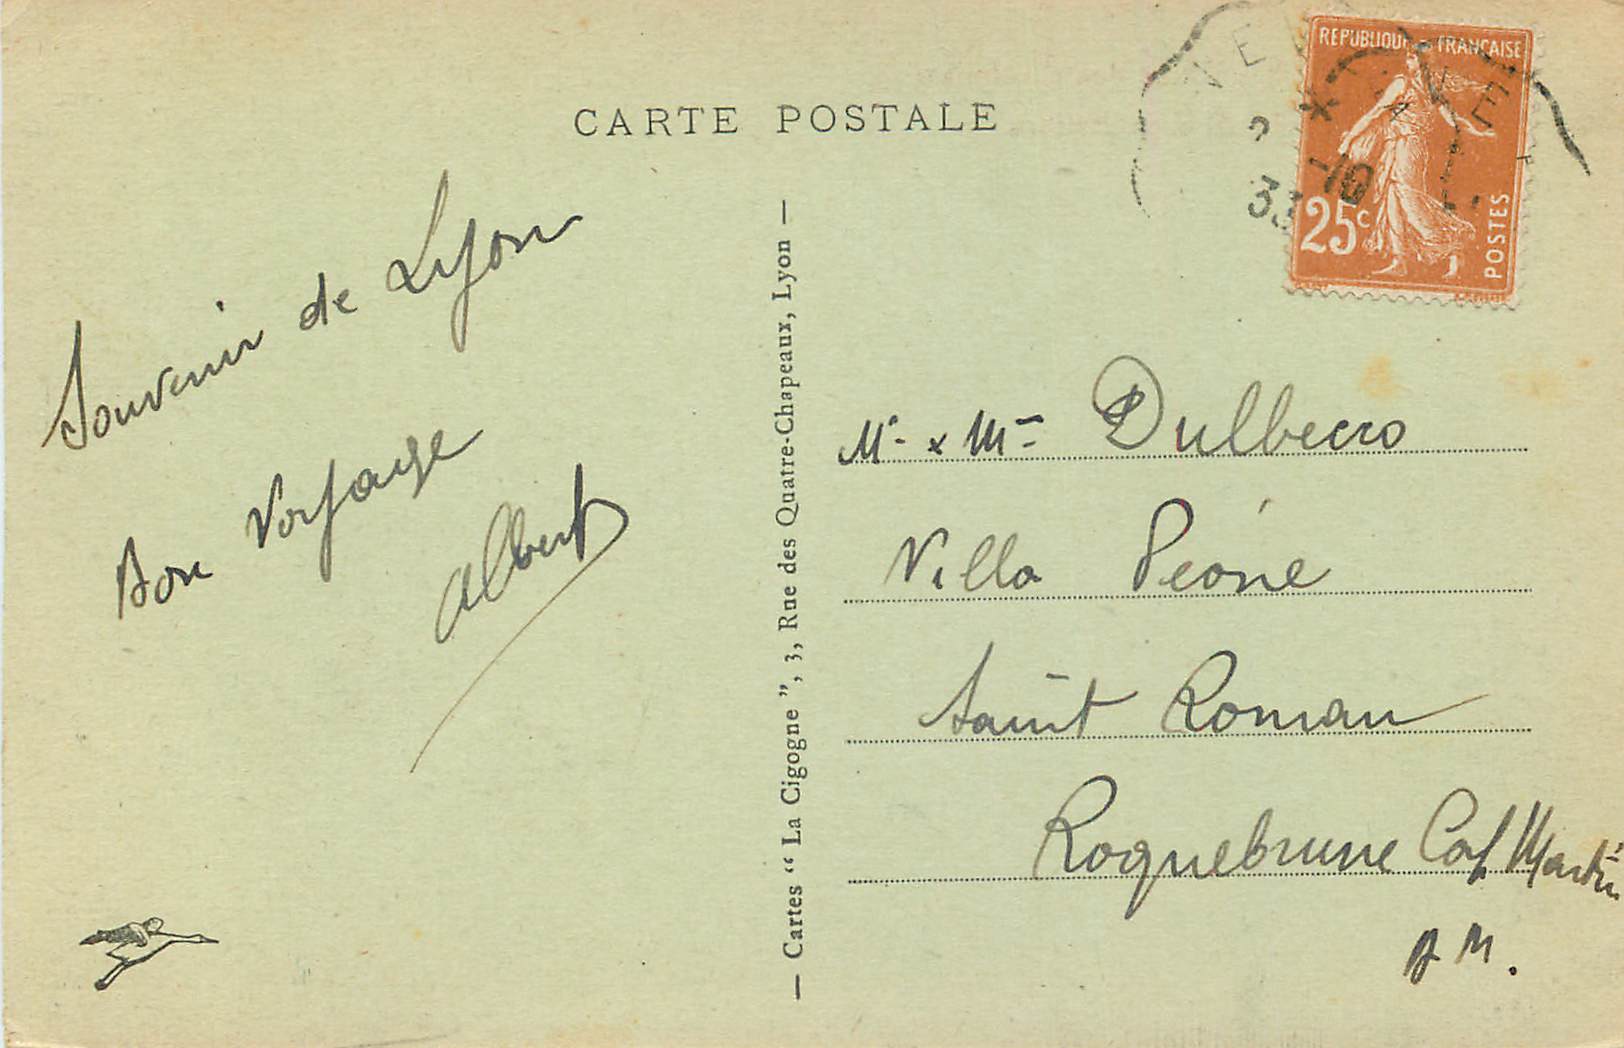 CARTE POSTALE
REPUBLIQUE FRANÇAISE
25c
POSTES
-10
33
Souvenir de Lyon
Bon Voyage
Albert
— Cartes “ La Cigogne ”, 3, Rue des Quatre-Chapeaux, Lyon —
Mr. x Mme Dulbecco
Villa Péone
Saint Roman
Roquebrune Cap Martin
A M.